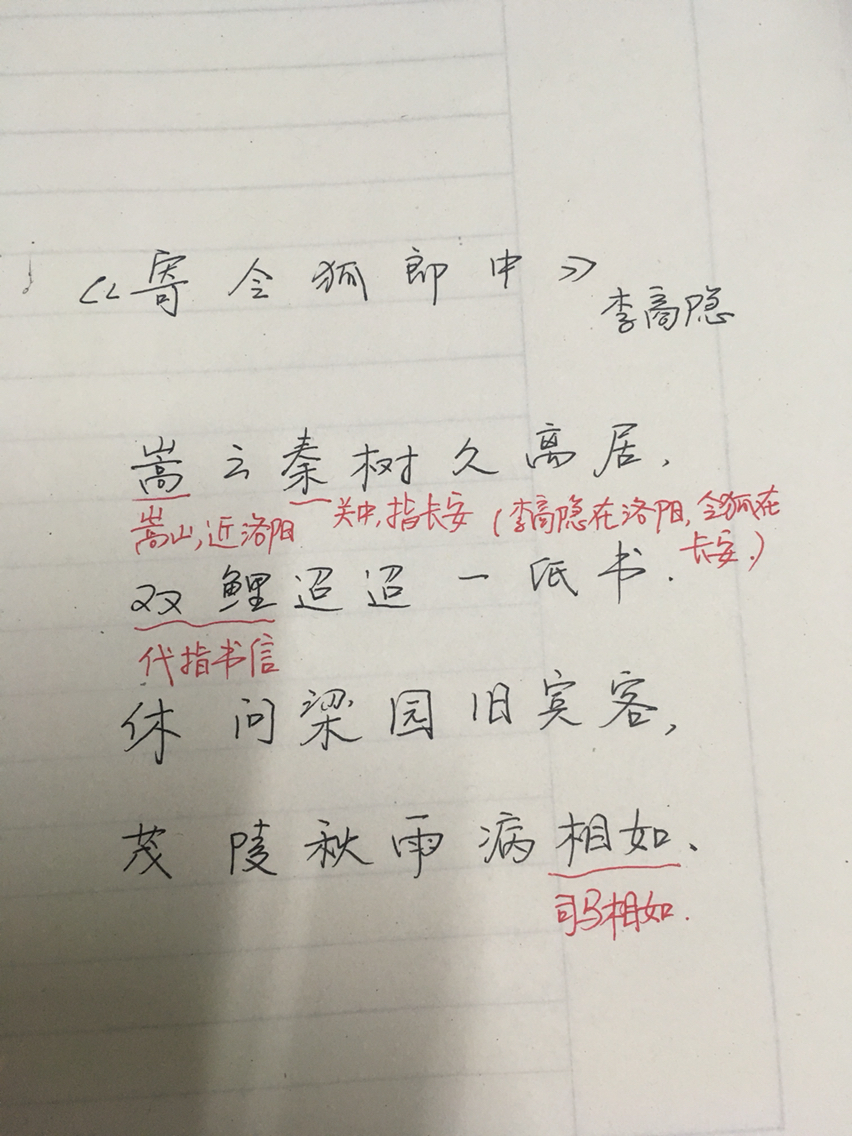 《寄令狐郎中》
李商隐
嵩云秦树久离居，
嵩山，近洛阳 关中，指长安（李商隐在洛阳，令狐在
长安.）
双鲤迢迢一纸书.
代指书信
休问梁园旧宾客，
茂陵秋雨病相如、
司马相如.